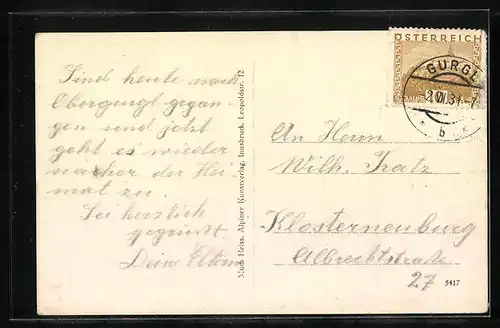 Sind heute nach
Obergurgl gegan-
gen und jetzt
geht es wieder
näher der Hei-
mat zu.
Sei herzlich
gegrüsst.
Deine Eltern
Much Heiss, Alpiner Kunstverlag, Innsbruck, Leopoldstr. 12
ÖSTERREICH
GURGL
31-7
b
An Herrn
Wilh. Tratz
Klosterneuburg
Albrechtstraße
27
5417